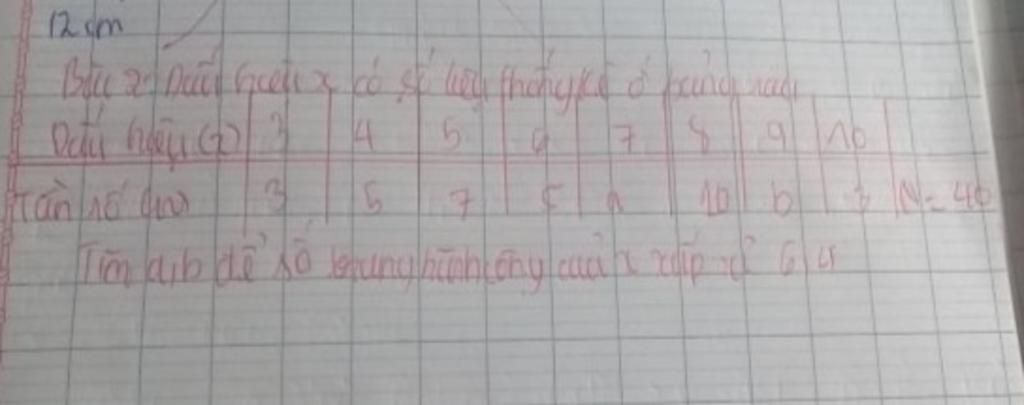 12 cm
Bài 2: Dấu hiệu x có số liệu thống kê ở bảng sau
Dấu hiệu (x) 3 4 5 7 8 9 10
Tần số (n) 3 5 7 a 10 b N = 40
Tìm a, b để số trung bình cộng của x xấp xỉ 6,4